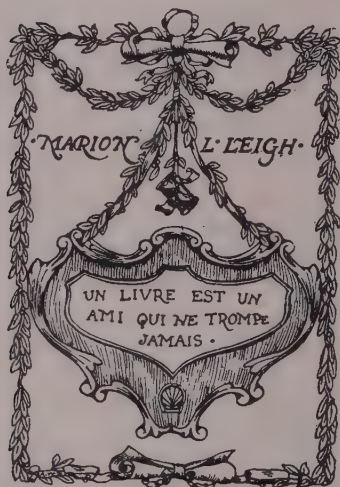 ·MARION L·LEIGH·
UN LIVRE EST UN
AMI QUI NE TROMPE
JAMAIS·